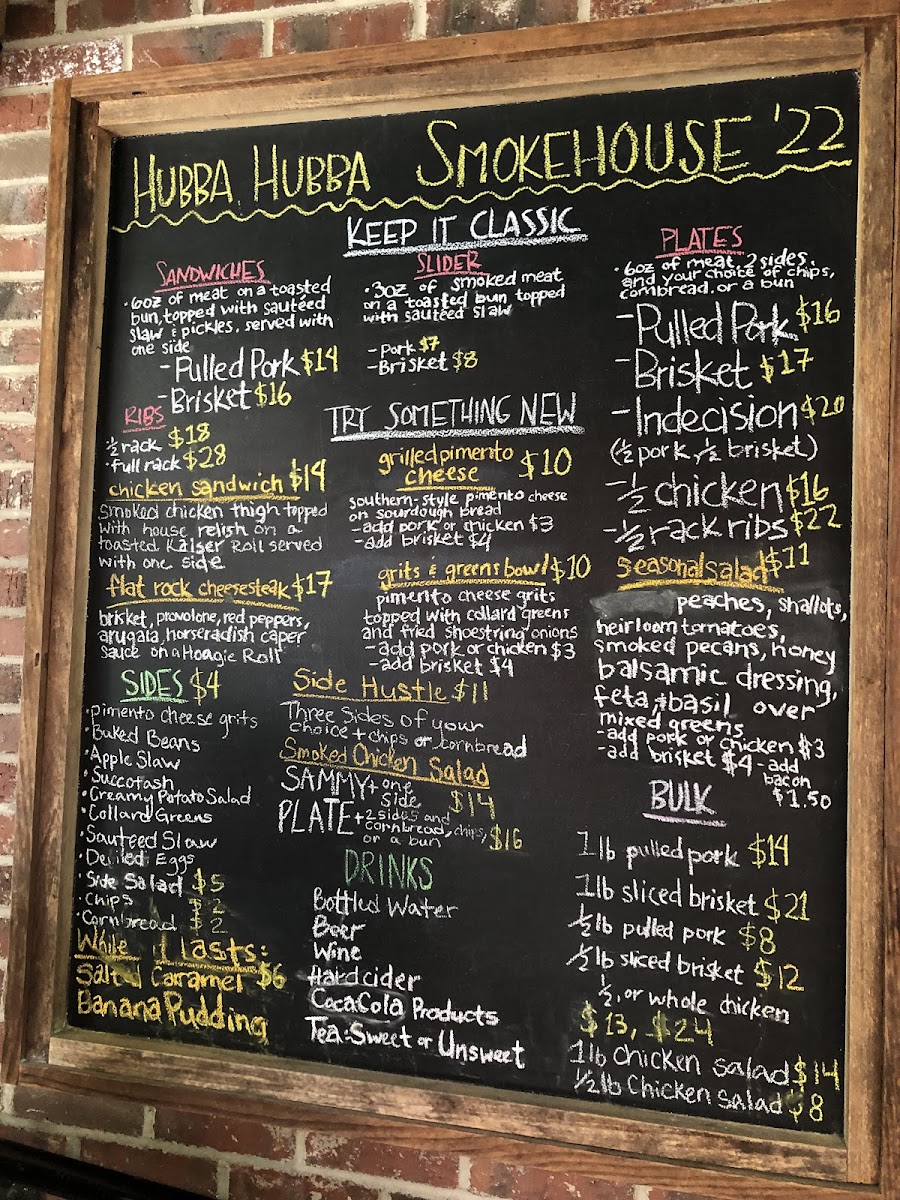 HUBBA HUBBA SMOKEHOUSE '22
KEEP IT CLASSIC
SANDWICHES
• 6oz of meat on a toasted
bun, topped with sautéed
slaw & pickles, served with
one side
- Pulled Pork $14
- Brisket $16
SLIDER
• 3oz of smoked meat
on a toasted bun, topped
with sautéed slaw
- Pork $7
- Brisket $8
PLATES
• 6oz of meat, 2 sides,
and your choice of chips,
cornbread, or a bun
- Pulled Pork $16
- Brisket $17
- Indecision $20
(½ pork, ½ brisket)
- ½ chicken $16
- ½ rack ribs $22
RIBS
• ½ rack $18
• full rack $28
chicken sandwich $14
smoked chicken thigh topped
with house relish on a
toasted Kaiser Roll served
with one side
flat rock cheesesteak $17
brisket, provolone, red peppers,
arugala, horseradish caper
sauce on a Hoagie Roll
TRY SOMETHING NEW
grilled pimento
cheese $10
southern-style pimento cheese
on sourdough bread
- add pork or chicken $3
- add brisket $4
grits & greens bowl $10
pimento cheese grits
topped with collard greens
and fried shoestring onions
- add pork or chicken $3
- add brisket $4
seasonal salad $11
peaches, shallots,
heirloom tomatoes,
smoked pecans, honey
balsamic dressing,
feta, + basil over
mixed greens
- add pork or chicken $3
- add brisket $4 - add
bacon
$1.50
SIDES $4
• pimento cheese grits
• Baked Beans
• Apple Slaw
• Succotash
• Creamy Potato Salad
• Collard Greens
• Sauteed Slaw
• Deviled Eggs
• Side Salad $5
• Chips $2
• Cornbread $2
While it lasts:
Salted Caramel $6
Banana Pudding
Side Hustle $11
Three sides of your
choice + chips or cornbread
Smoked Chicken Salad
SAMMY + one
side $14
PLATE + 2 sides and
cornbread, chips,
or a bun $16
DRINKS
Bottled Water
Beer
Wine
Hard cider
CocaCola Products
Tea: Sweet or Unsweet
BULK
1 lb pulled pork $14
1 lb sliced brisket $21
½ lb pulled pork $8
½ lb sliced brisket $12
½, or whole chicken
$13, $24
1 lb chicken salad $14
½ lb Chicken Salad $8